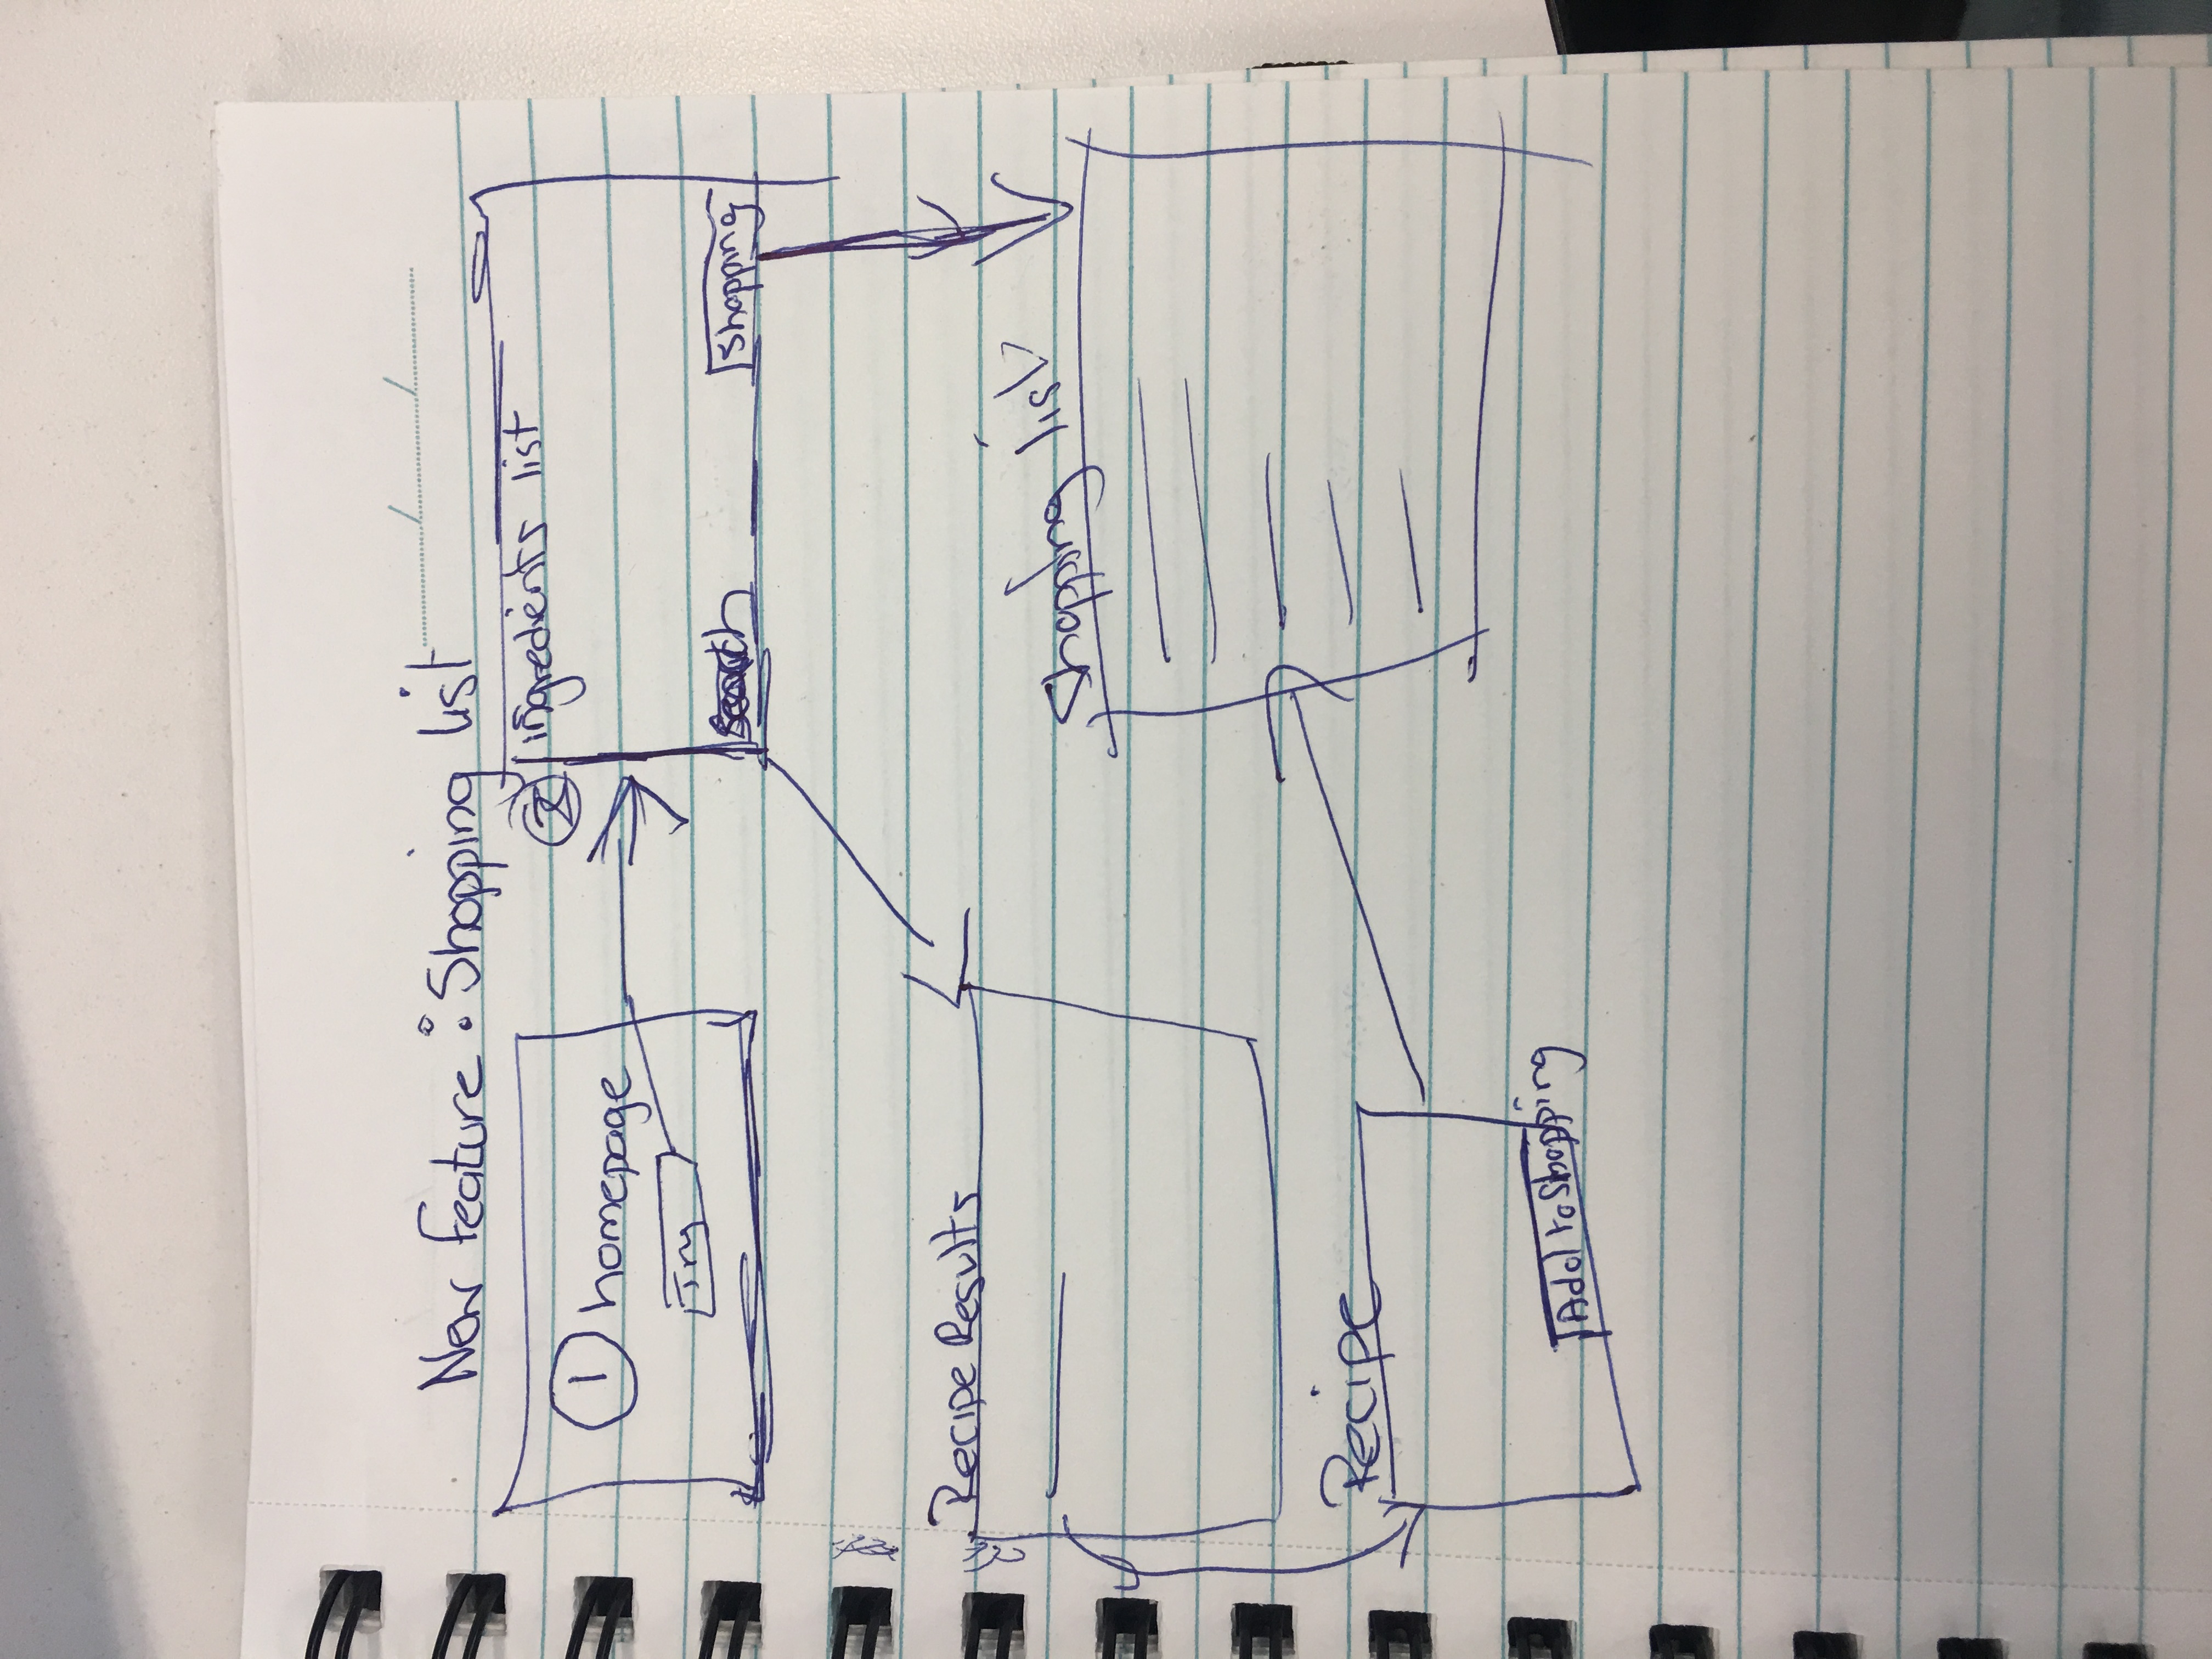 New feature : Shopping list
1 homepage
Try
2 ingredients list
Search
Shopping
Recipe Results
Shopping list
Recipe
Add to Shopping